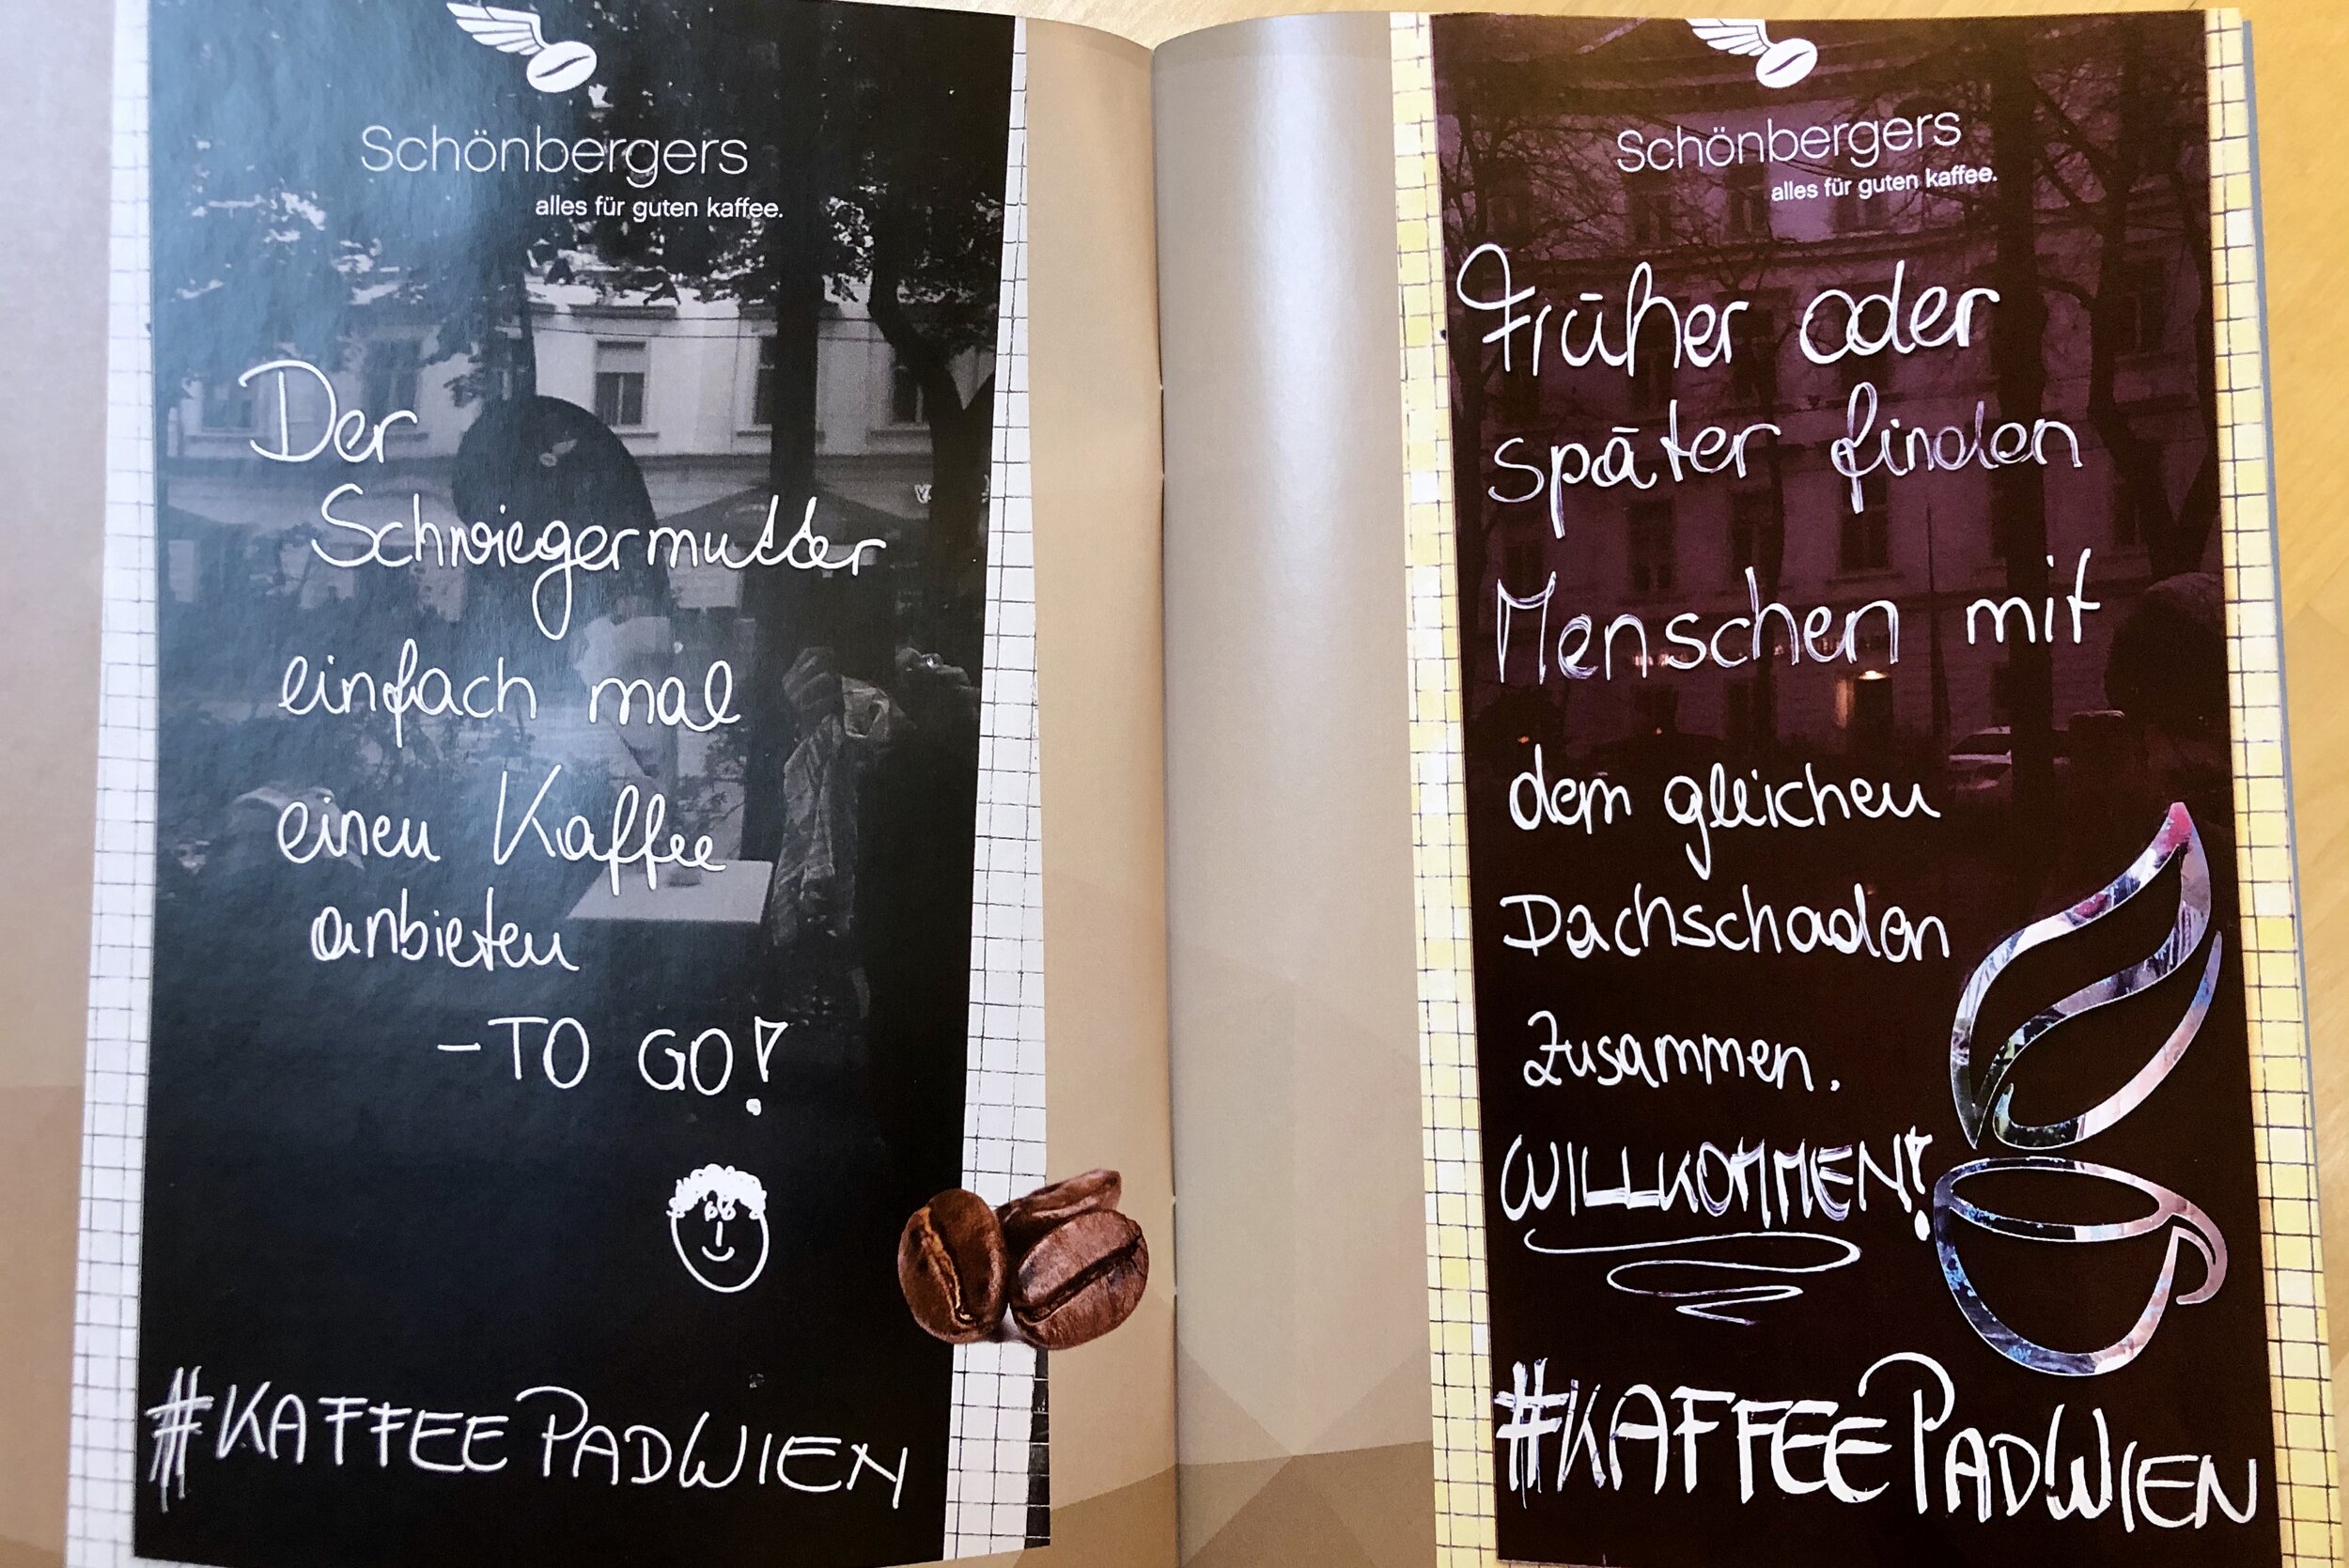 Schönbergers
alles für guten kaffee.
Der
Schwiegermutter
einfach mal
einen Kaffee
anbieten
- TO GO!
#KAFFEEPADWIEN
Schönbergers
alles für guten kaffee.
Früher oder
später finden
Menschen mit
dem gleichen
Dachschaden
zusammen.
WILLKOMMEN!
#KAFFEEPADWIEN